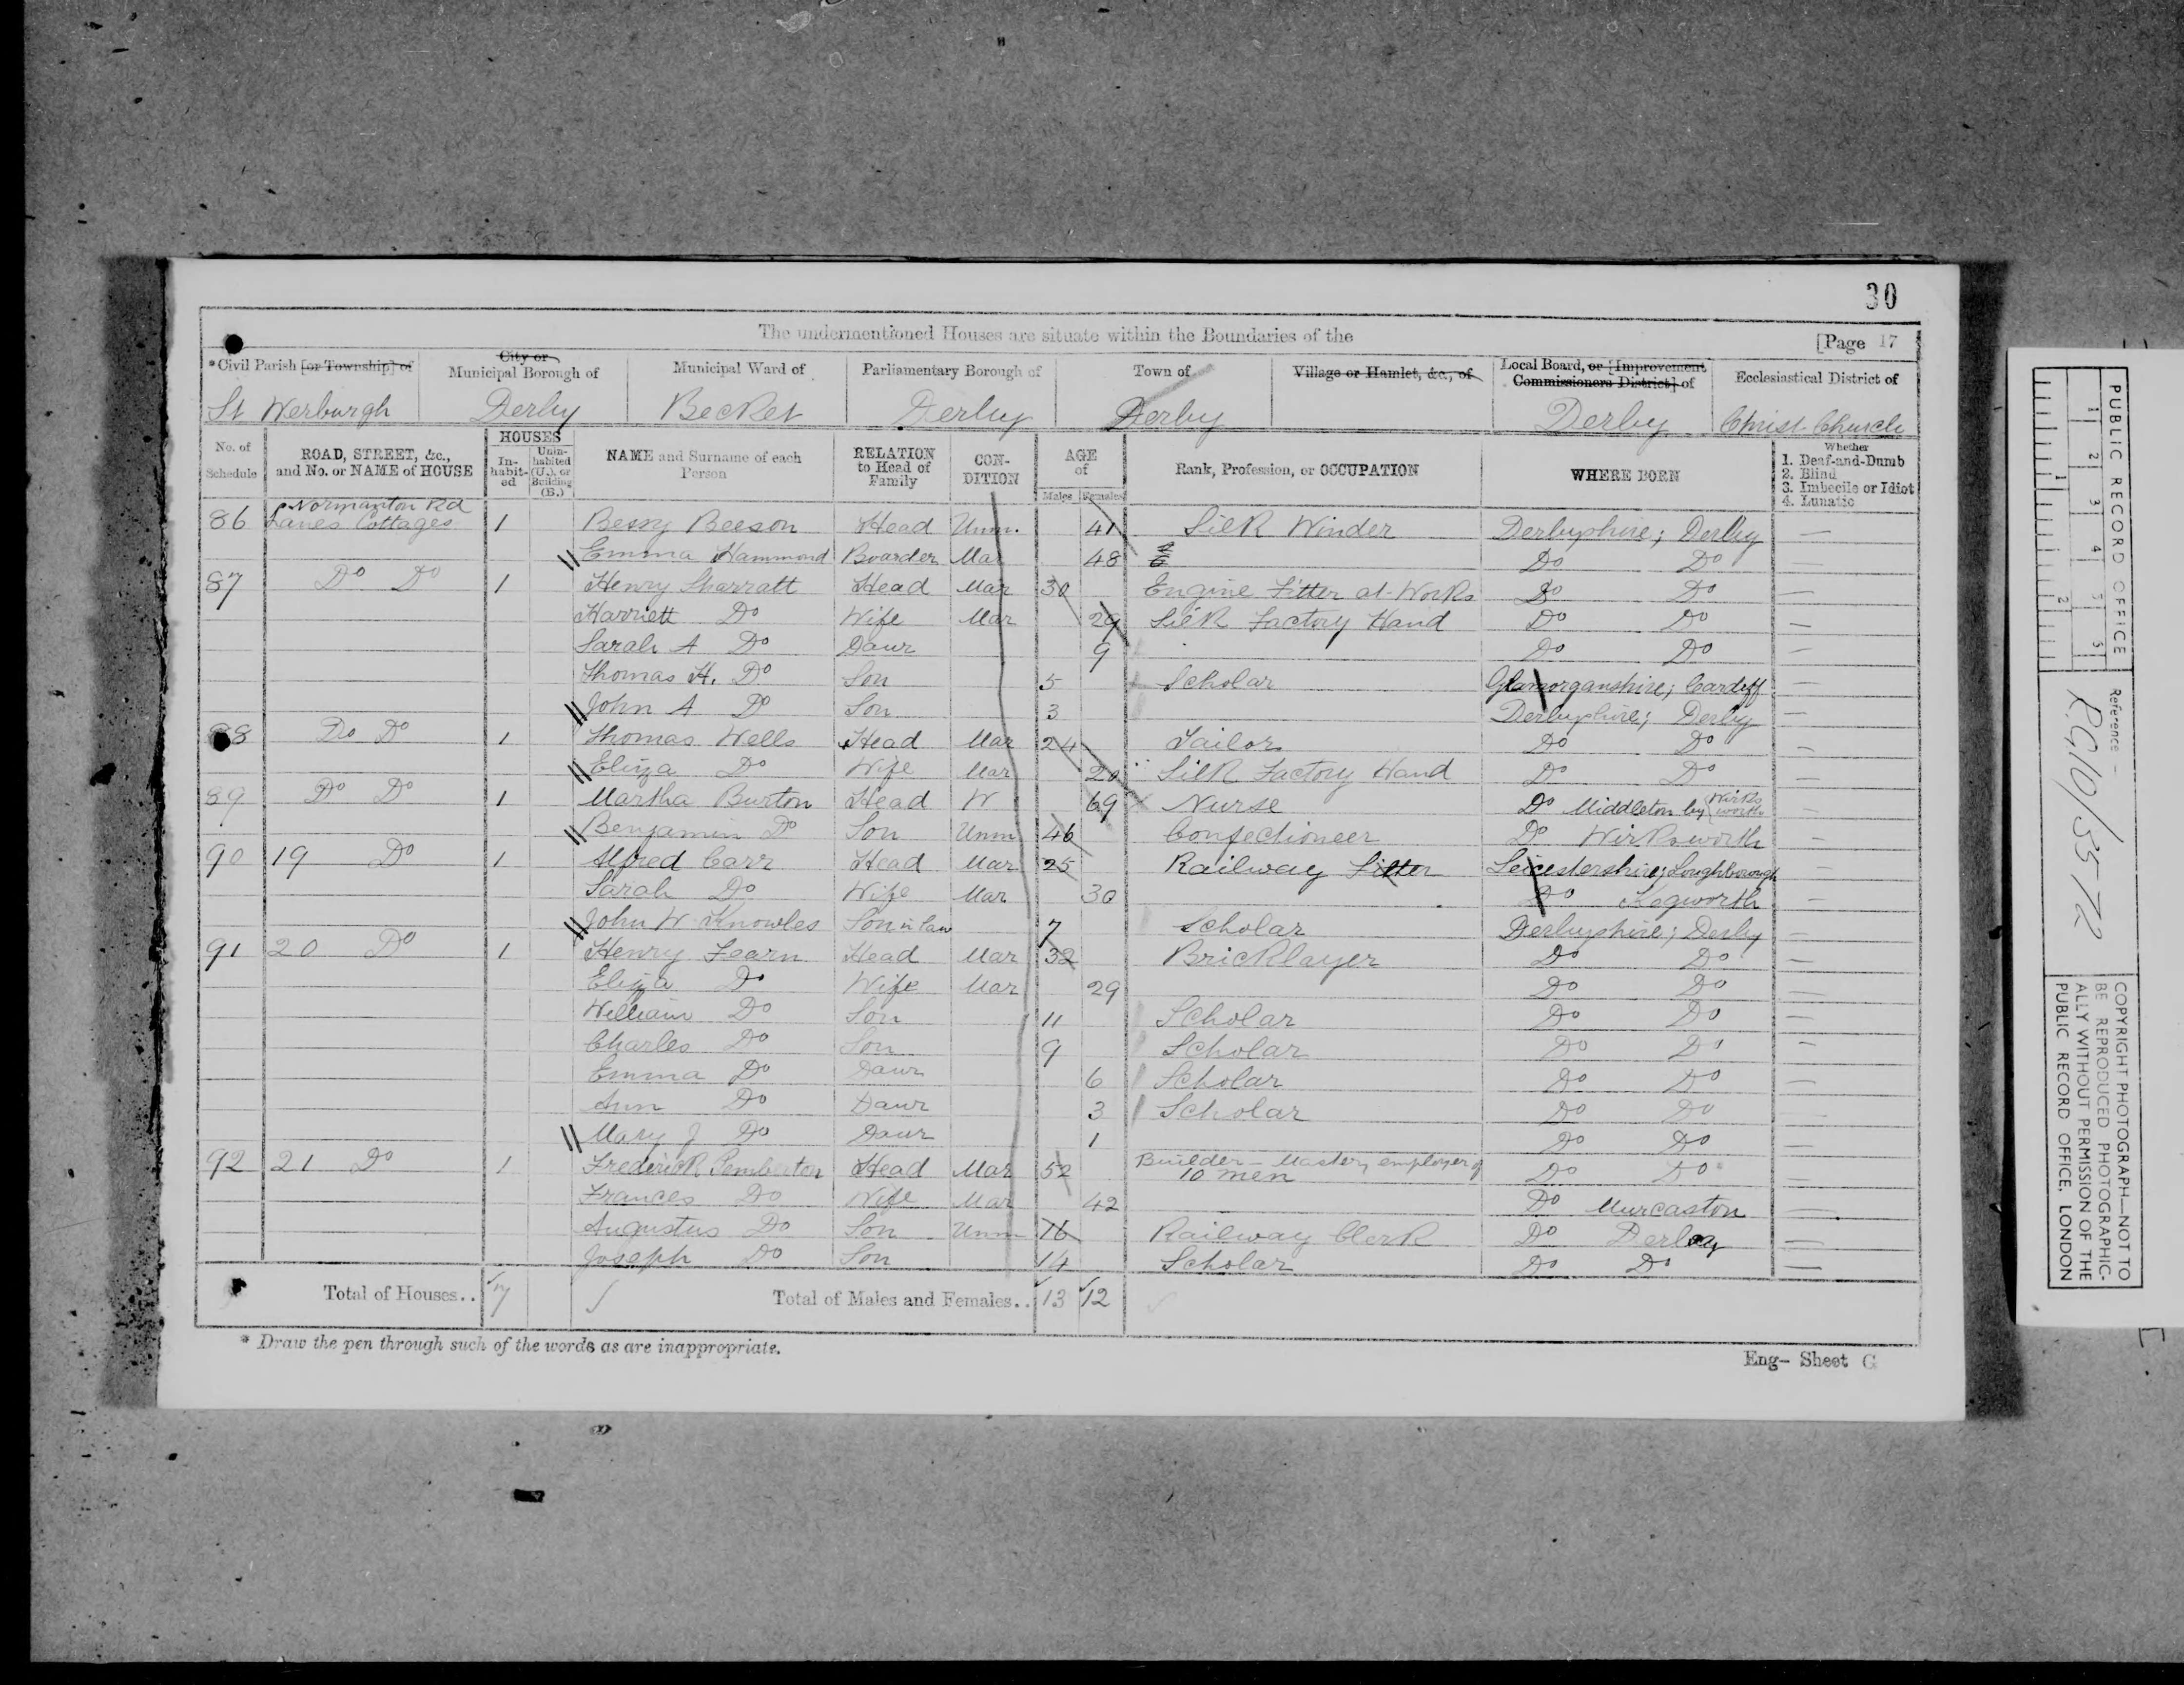 30
The undermentioned Houses are situate within the Boundaries of the [Page 17
*Civil Parish [or Township] of City or Municipal Borough of Municipal Ward of Parliamentary Borough of Town of Village or Hamlet, &c., of Local Board, or [Improvement Commissioners District] of Ecclesiastical District of
St Werburgh Derby Becket Derby Derby Derby Christ Church
No. of Schedule ROAD, STREET, &c., and No. or NAME of HOUSE HOUSES Inhabited Uninhabited (U.), or Building (B.) NAME and Surname of each Person RELATION to Head of Family CONDITION AGE of Males Females Rank, Profession, or OCCUPATION WHERE BORN Whether 1. Deaf-and-Dumb 2. Blind 3. Imbecile or Idiot 4. Lunatic
Normanton Rd
86 Lanes Cottages 1 Bessy Beeson Head Unm. 41 Silk Winder Derbyshire; Derby —
Emma Hammond Boarder Mar 48 Do Do —
87 Do Do 1 Henry Sharratt Head Mar 30 Engine Fitter at Works Do Do —
Harriett Do Wife Mar 29 Silk Factory Hand Do Do —
Sarah A Do Daur 9 Do Do —
Thomas H. Do Son 5 Scholar Glamorganshire; Cardiff —
John A Do Son 3 Derbyshire; Derby —
88 Do Do 1 Thomas Wells Head Mar 24 Tailor Do Do —
Eliza Do Wife Mar 20 Silk Factory Hand Do Do —
89 Do Do 1 Martha Burton Head W 69 Nurse Do Middleton by Wirksworth —
Benjamin Do Son Unm 46 Confectioner Do Wirksworth —
90 19 Do 1 Alfred Carr Head Mar 25 Railway Fitter Leicestershire; Loughborough —
Sarah Do Wife Mar 30 Do Kegworth —
John W Knowles Son in law 7 Scholar Derbyshire; Derby —
91 20 Do 1 Henry Fearn Head Mar 32 Bricklayer Do Do —
Eliza Do Wife Mar 29 Do Do —
William Do Son 11 Scholar Do Do —
Charles Do Son 9 Scholar Do Do —
Emma Do Daur 6 Scholar Do Do —
Ann Do Daur 3 Scholar Do Do —
Mary J Do Daur 1 Do Do —
92 21 Do 1 Frederick Pemberton Head Mar 52 Builder - Master, employer of 10 men Do Do —
Frances Do Wife Mar 42 Do Murcaston —
Augustus Do Son Unm 16 Railway Clerk Do Derby —
Joseph Do Son 14 Scholar Do Do —
Total of Houses.. 7 Total of Males and Females.. 13 12
* Draw the pen through such of the words as are inappropriate.
Eng- Sheet G
PUBLIC RECORD OFFICE
1 2 3 4 5 6
1 2
Reference -
R.G10/3572
COPYRIGHT PHOTOGRAPH—NOT TO
BE REPRODUCED PHOTOGRAPHIC-
ALLY WITHOUT PERMISSION OF THE
PUBLIC RECORD OFFICE, LONDON